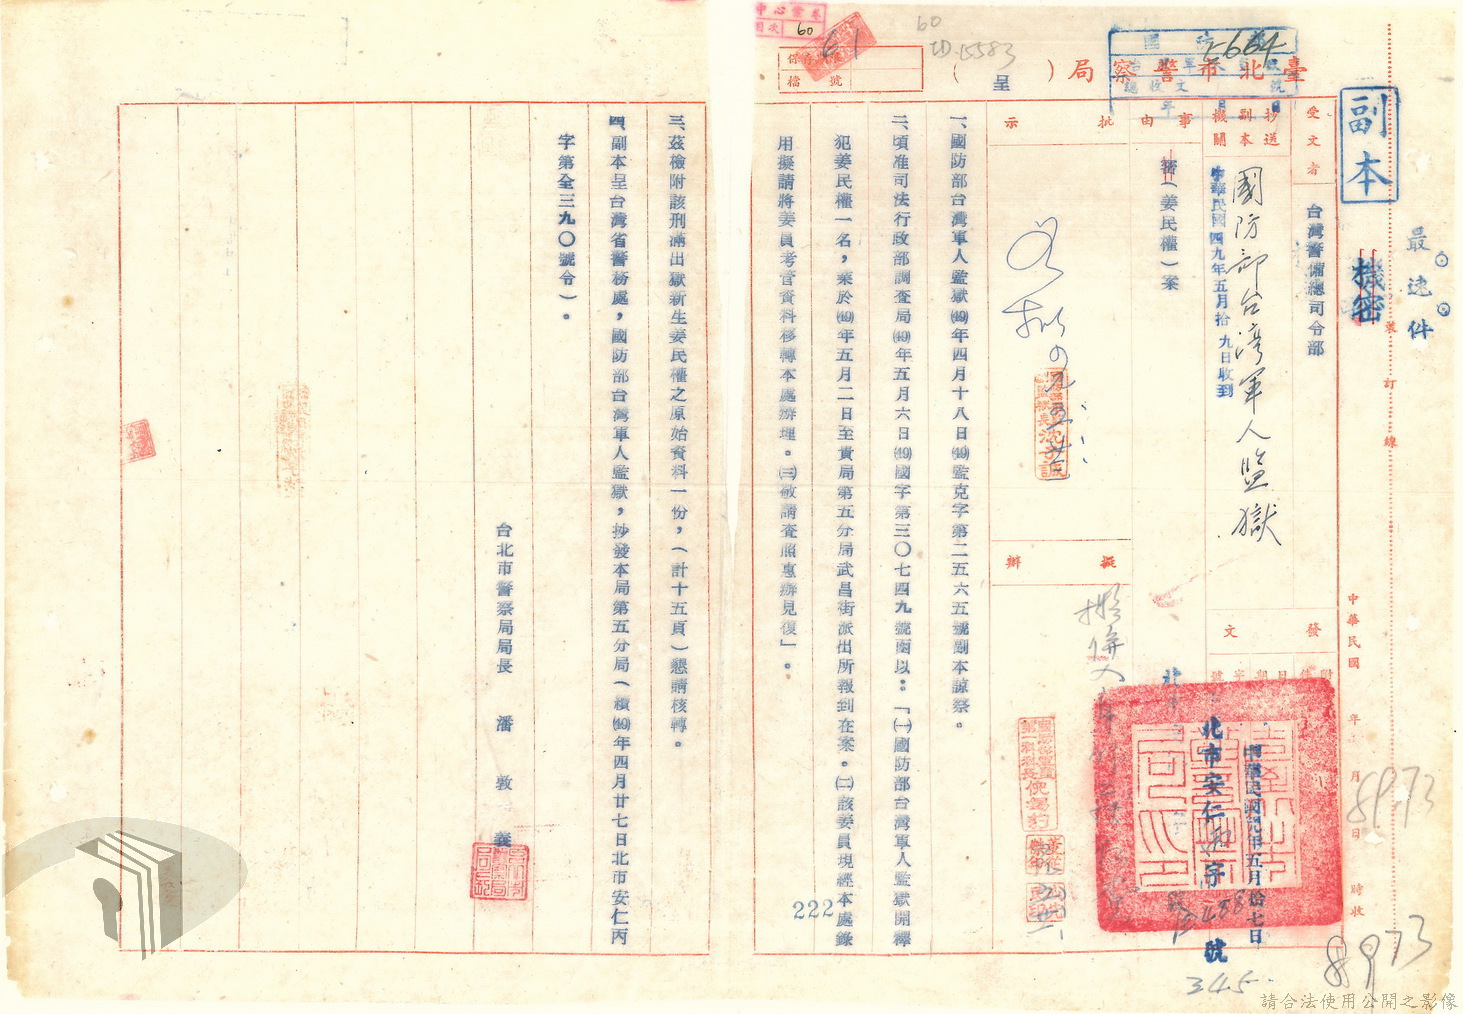 副本
最速件
機密
臺北市警察局
（呈）
受文者
台灣警備總司令部
抄送
副本
機關
國防部台灣軍人監獄
中華民國四九年五月拾九日收到
事由
密（姜民權）案
批示
擬辦
發文
中華民國四九年五月拾七日
北市安仁丙字 號
345
一、國防部台灣軍人監獄㈾年四月十八日㈾監克字第二五六五號副本諒察。
二、頃准司法行政部調查局㈾年五月六日㈾國字第三〇七四九號函以：「㈠國防部台灣軍人監獄開釋
犯姜民權一名，業於㈾年五月二日至貴局第五分局武昌街派出所報到在案。㈡該姜員現經本處錄
用擬請將姜員考管資料移轉本處辦理。㈢敬請查照惠辦見復」。
三、茲檢附該刑滿出獄新生姜民權之原始資料一份，（計十五頁）懇請核轉。
四、副本呈台灣省警務處，國防部台灣軍人監獄，抄發本局第五分局（積㈾年四月廿七日北市安仁丙
字第全三九〇號令）。
台北市警察局局長 潘 敦 義
裝訂線
中華民國 年 月 日 時收
8973
8973
222
60
61
60
15583
2664
保存
檔號
請合法使用公開之影像